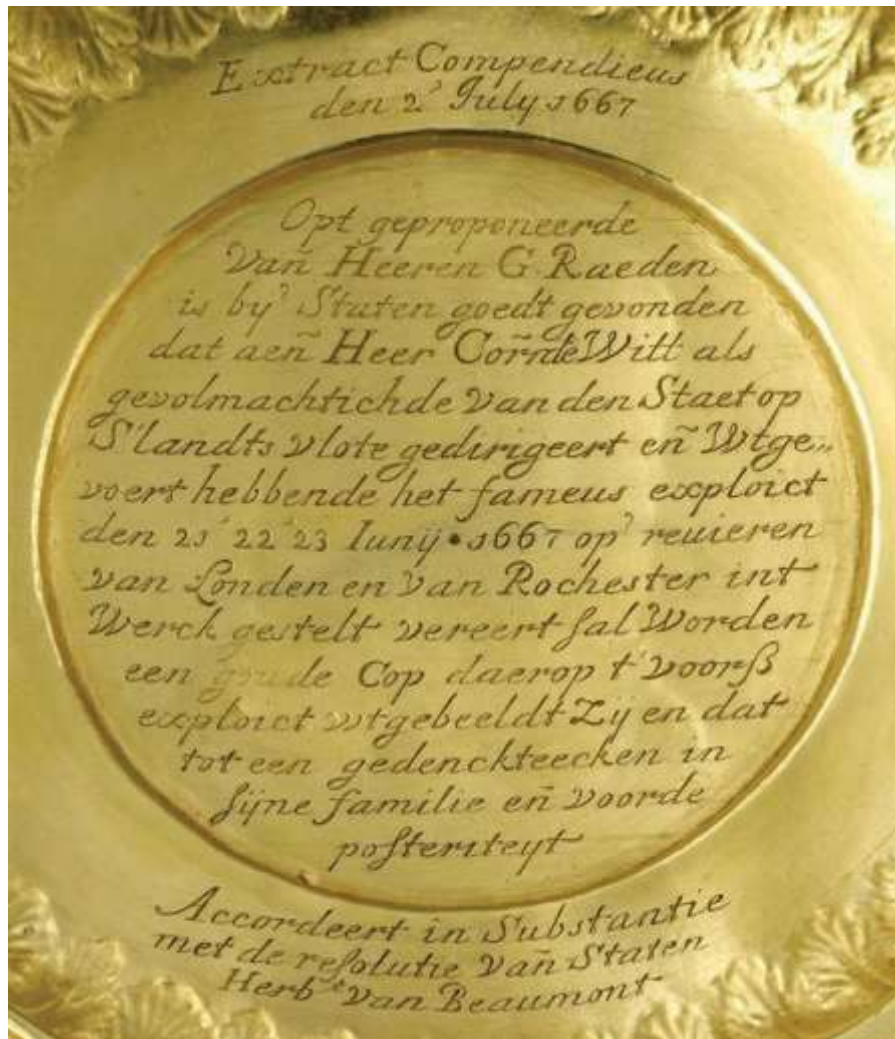 Extract Compendieus
den 2' July 1667
Opt geproponeerde
Vañ Heeren G. Raeden
is by' Staten goedt gevonden
dat aeñ Heer Corñ de Witt als
gevolmachtichde van den Staet op
S'landts vlote gedirigeert eñ Wtge„
voert hebbende het fameus exploict
den 21' 22' 23 Iunij • 1667 op' reuieren
van Londen en van Rochester int
Werck gestelt vereert sal Worden
een goude Cop daerop t' voorß
exploict wtgebeeldt Zij en dat
tot een gedenckteecken in
sijne familie eñ voorde
posteriteyt
Accordeert in Substantie
met de resolutie Vañ Staten
Herbt van Beaumont